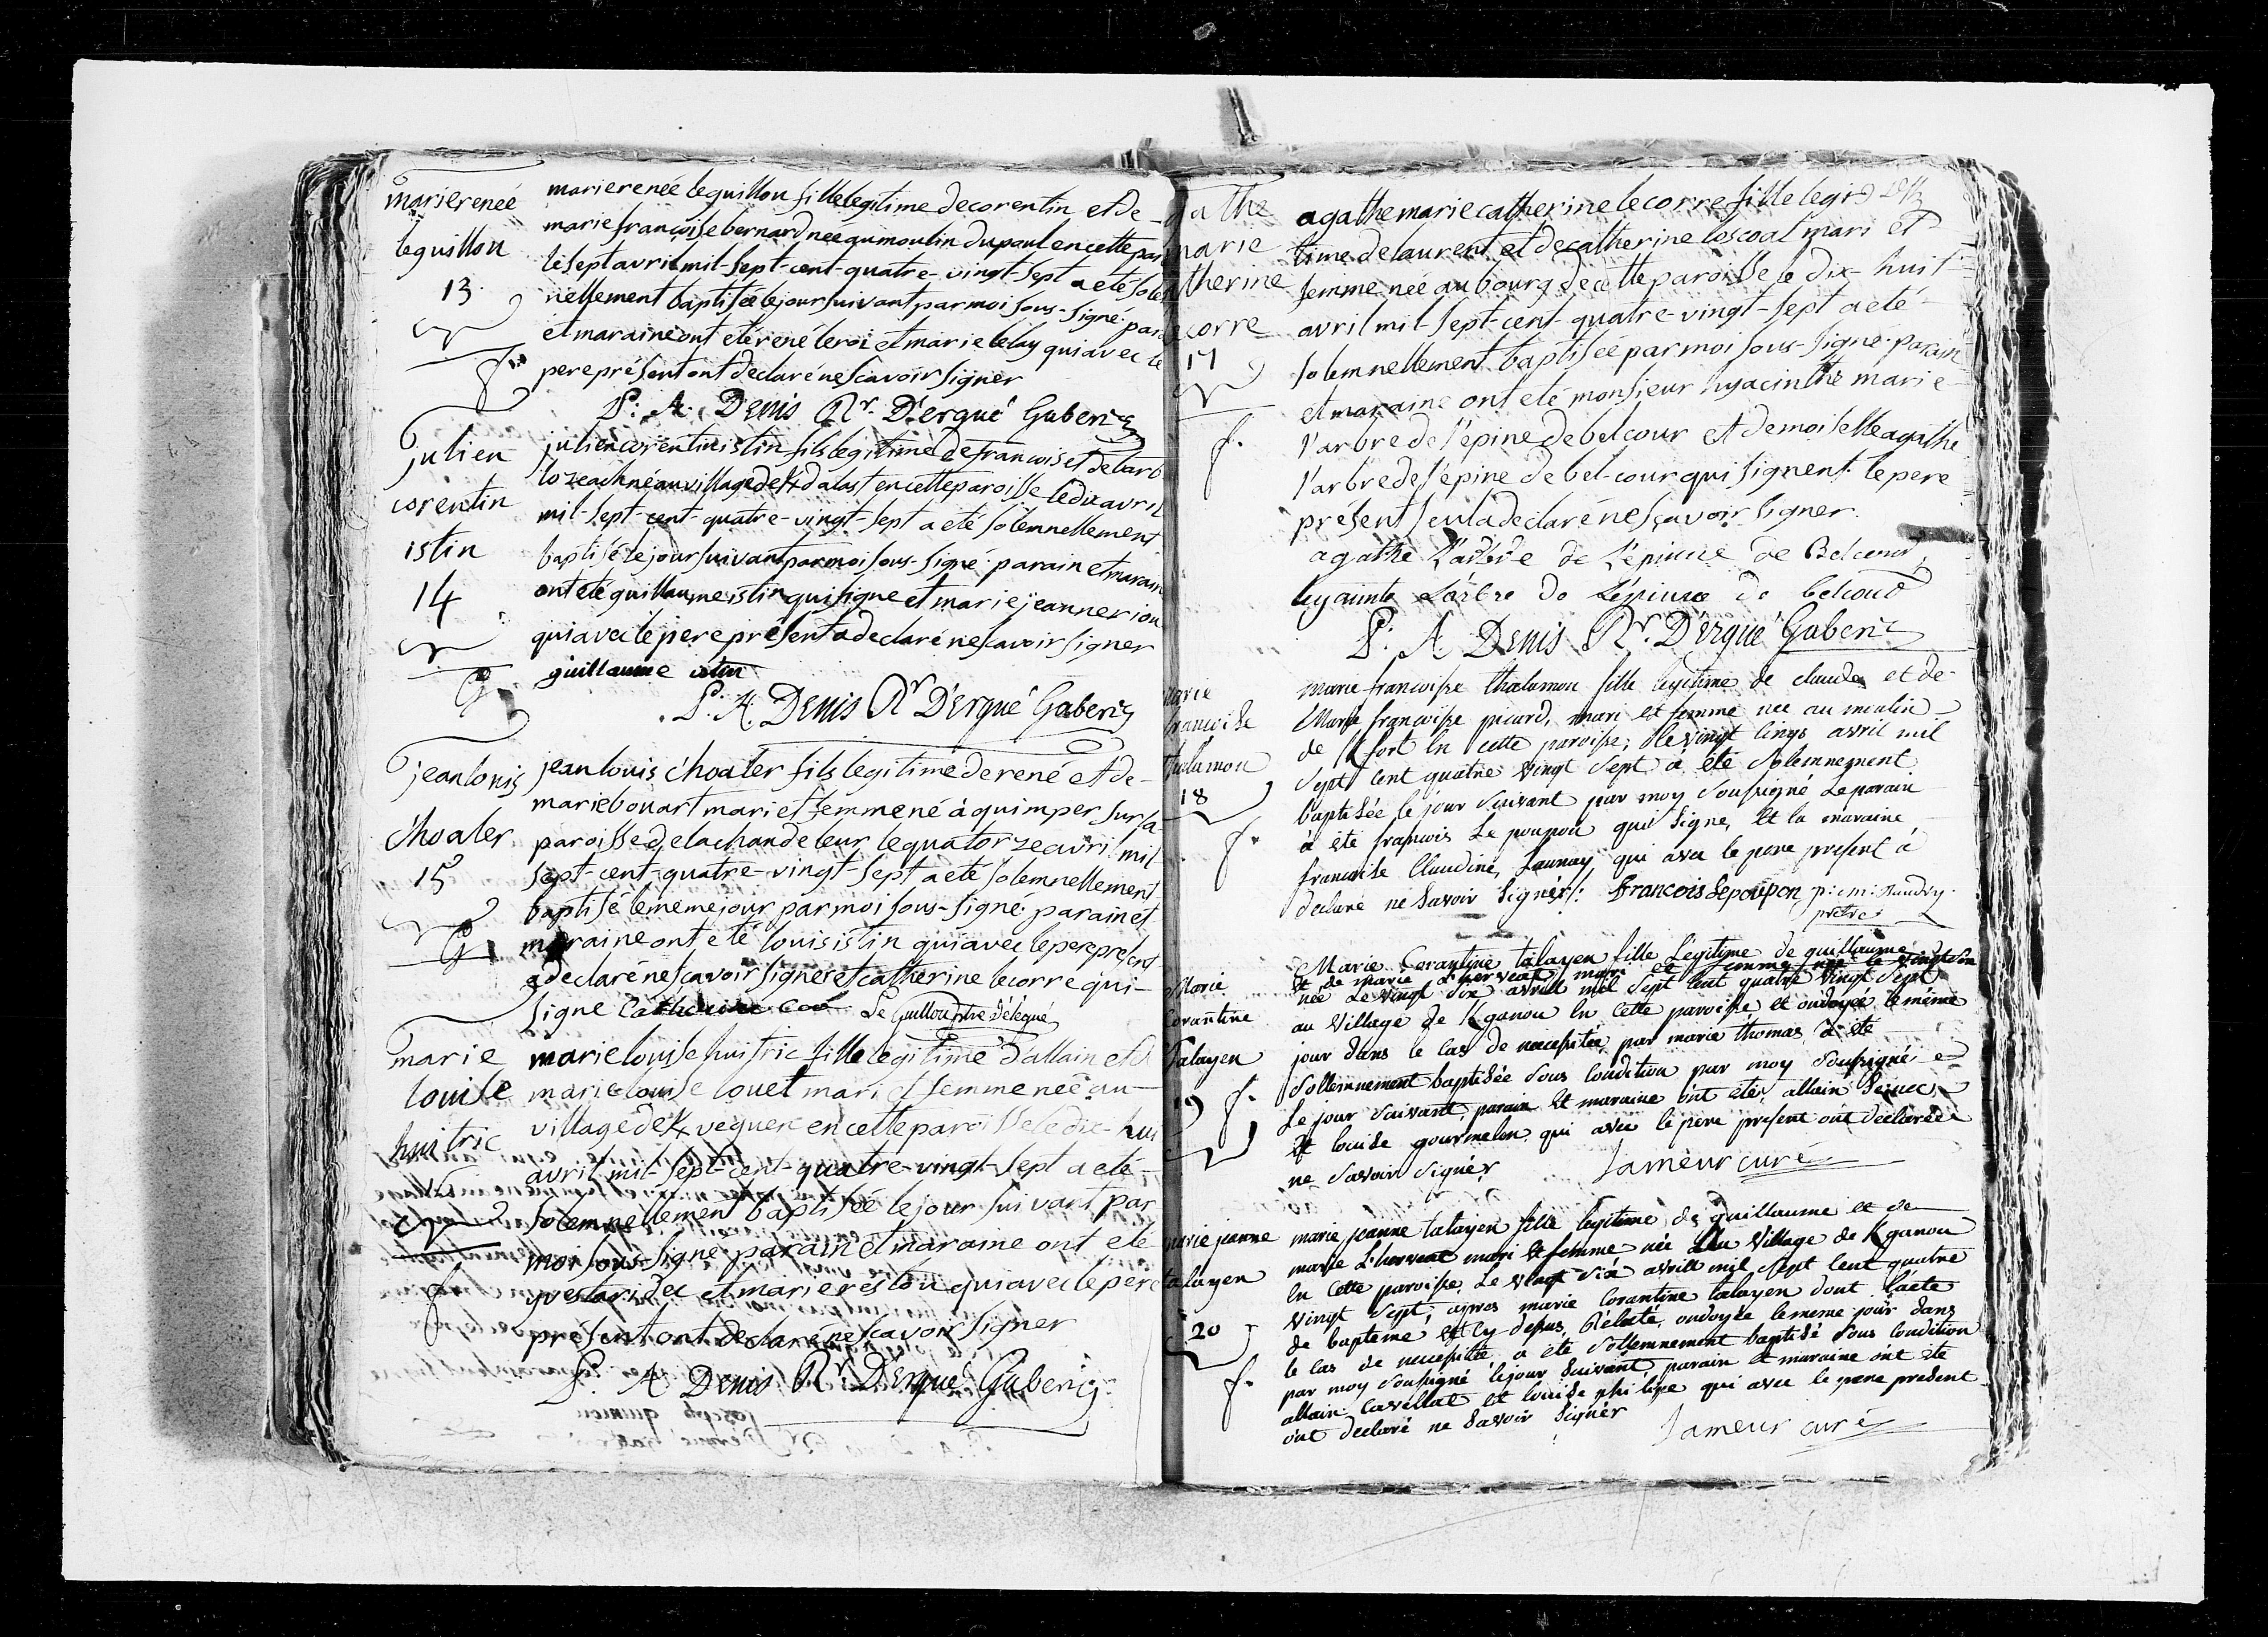 marie renée
le guillou
13
marie renée le guillou fille legitime de corentin et de
marie françoise bernard née au moulin du paul en cette par
le sept avril mil-sept-cent-quatre-vingt-sept a eté solen
nellement baptisée le jour suivant par moi sous-signé par
et maraine ont eté rené le roi et marie le lay qui avec le
pere présent ont declaré ne scavoir signer
P: A: Denis Rr. D'ergué Gaberic
julien
corentin
istin
14
julien corentin istin fils legitime de francois et de barb
lozeach né au village de K/dalast en cette paroisse le dix avril
mil-sept-cent-quatre-vingt-sept a eté solemnellement
baptisé le jour suivant par moi sous-signé parain et marain
ont eté guillaume istin qui signe et marie jeanne riou
qui avec le pere présent a declaré ne scavoir signer
guillaume istin
P: A: Denis Rr D'Ergué Gaberic
jean louis
c'hoaler
15
jean louis c'hoaler fils legitime de rené et de
marie bouart mari et femme né à quimper sur la
paroisse de la chandeleur le quatorze avril mil
sept-cent-quatre-vingt-sept a eté solemnellement
baptisé le meme jour par moi sous-signé parain et
maraine ont eté louis istin qui avec le pere present
a declaré ne scavoir signer et catherine le corre qui
signe Catherine Le Guillou ptre délégué
marie
louise
huitric
marie louise huitric fille legitime d'allain et d
marie louise louet mari et femme née au
village de K/veguen en cette paroisse le dix-hui
avril mil-sept-cent-quatre-vingt-sept a eté
solemnellement baptisée le jour suivant par
moi sous-signé parain et maraine ont eté
yves et marie qui avec le pere
présent ont declaré ne scavoir signer
P. A Denis Rr D'Ergué Gaberic
gathe
marie
therine
corre
17
agathe marie catherine le corre fille legi
time de laurent et de catherine lescoat mari et
femme née au bourg de cette paroisse le dix-huit
avril mil-sept-cent-quatre-vingt-sept a eté
solemnellement baptisée par moi sous-signé parain
et maraine ont eté monsieur hyacinthe marie
l'arbre de l'épine de belcour et demoiselle agathe
l'arbre de l'épine de bel-cour qui signent le pere
présent seul a declaré ne scavoir signer
agathe L'arbre de L'épinne de Belcour
hyacinte L'arbre de L'épinne de belcour
P: A Denis Rr. D'érgué Gaberic
arie
rancoise
thalamon
18
marie francoise thalamon fille legitime de claude et de
Marie francoise picard, mari et femme née au moulin
de K/fort En cette paroisse, le vingt avril mil
Sept Cent quatre vingt Sept à été Solemnement
baptisée le jour Suivant par moy Soussigné Le parain
à été francois Le poupon qui Signe, Et la maraine
francoise Claudine Launay qui avec le pere present à
declaré ne Savoir Signér. Francois Lepoupon p: c: m: Naudry
pretre
Marie
Corantine
Talayen
19
Marie Corantine talayen fille Legitime de guillaume
et de marie L'herveat mari et femme née le vingt Six
née Le vingt Six avrill mil Sept Cent quatre vingt Sept
au Village de K/ganou En Cette paroisse, et ondoyée le même
jour dans le Cas de necessitée, par marie thomas à été
Sollemnement baptisée Sous Condition par moy Soussigné
Le jour Suivant, parain Et maraine ont eté, allain
Et louise gourmelon qui avec le pere present ont declaré
ne Savoir Signér Jameur curé
marie jeanne
talayen
20
marie jeanne talayen fille legitime de guillaume et de
marie L'herveat mari Et femme née au Village de K/ganou
En Cette paroisse, Le vingt Six avrill mil Sept Cent quatre
vingt Sept, apres marie Corantine talayen dont l'acte
de bapteme Est Cy dessus Rélaté, ondoyée le meme jour dans
le Cas de necessitée a été Sollemnement baptisé Sous Condition
par moy Soussigné le jour Suivant, parain et maraine ont été
allain Cavellat et louise philipe qui avec le pere present
ont declaré ne Savoir Signér Jameur curé